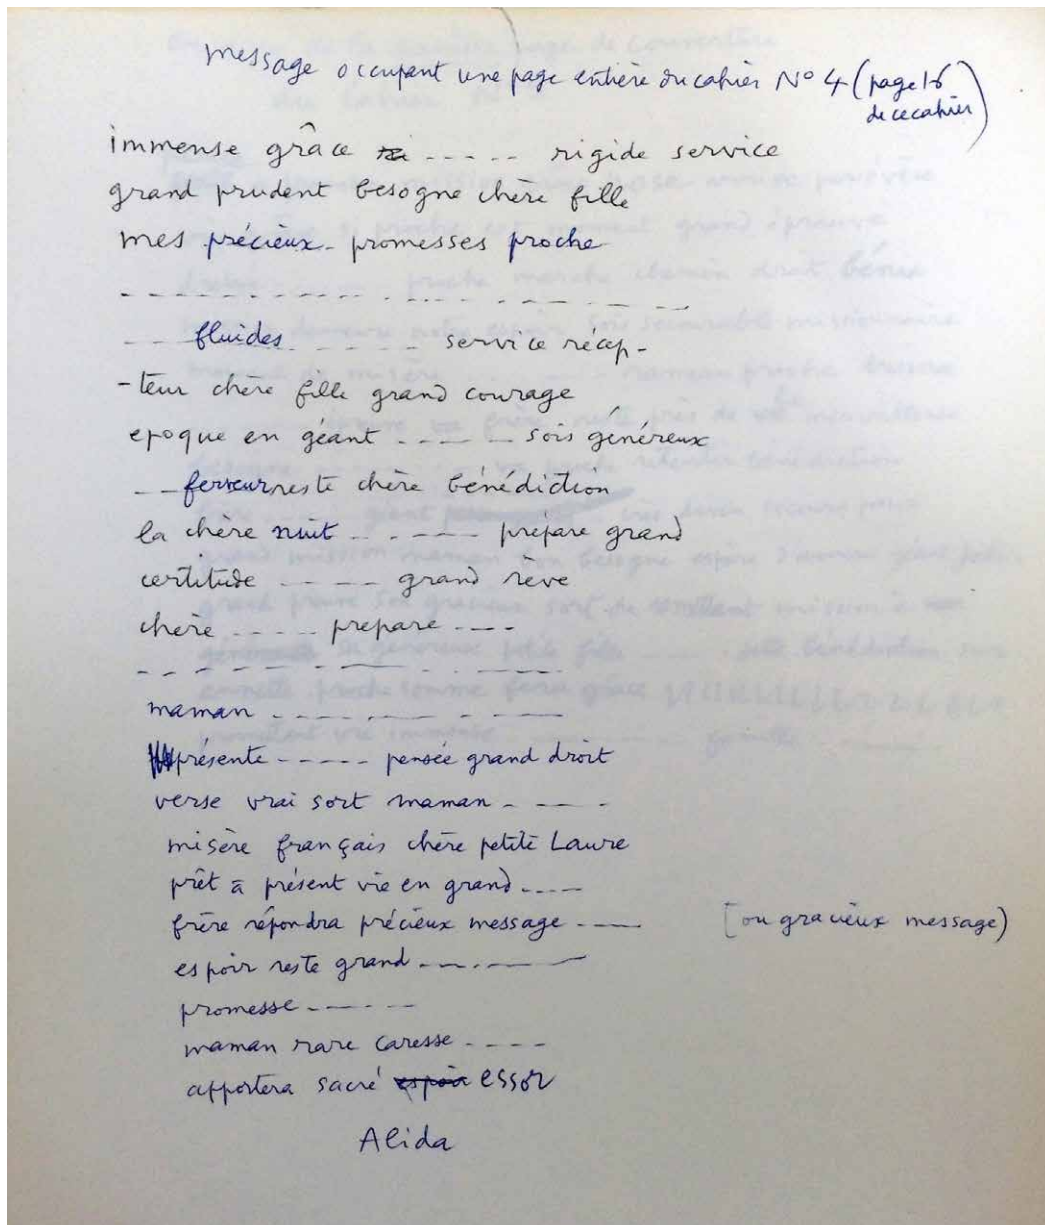 message occupant une page entière du cahier N° 4 (page 16
de ce cahier)
immense grâce ----- rigide service
grand prudent besogne chère fille
mes précieux - promesses proche
- - - - - - - - - - - - - - - - - - - -
- - - fluides - - - - - - service récep-
-teur chère fille grand courage
epoque en géant ------ sois généreux
-- ferveur reste chère bénédiction
la chère nuit ------ prépare grand
certitude ----- grand rêve
chère ----- prepare ----
- - - - - - - - - - - - - -
maman - - - - - - - - - -
présente ----- pensée grand droit
verse vrai sort maman - - - -
misère français chère petite Laure
prêt à présent vie en grand ----
frère répondra précieux message ---- [ou gracieux message)
espoir reste grand ------
promesse ------
maman rare caresse ----
apportera sacré espoir essor
Alida